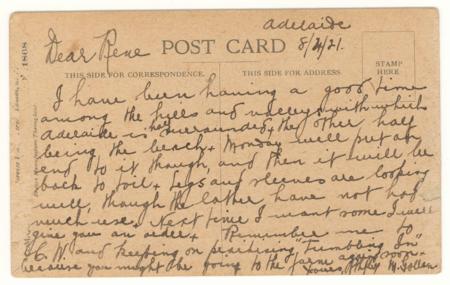 Adelaide
8/2/21.
Dear Rene
POST CARD
1808
THIS SIDE FOR CORRESPONDENCE.
THIS SIDE FOR ADDRESS.
STAMP
HERE
I have been having a good time
among the hills and valleys with which
Adelaide is half surrounded & the other half
being the beach & Monday will put an
end to it though, and then it will be
back to toil & Legs and sleeves are looking
well, though the latter have not had
much use. Next time I want some I will
give you an order & Remember me to
C. W. and keep on practising "Tumbling In"
because you might be going to the farm again soon.
Yours,